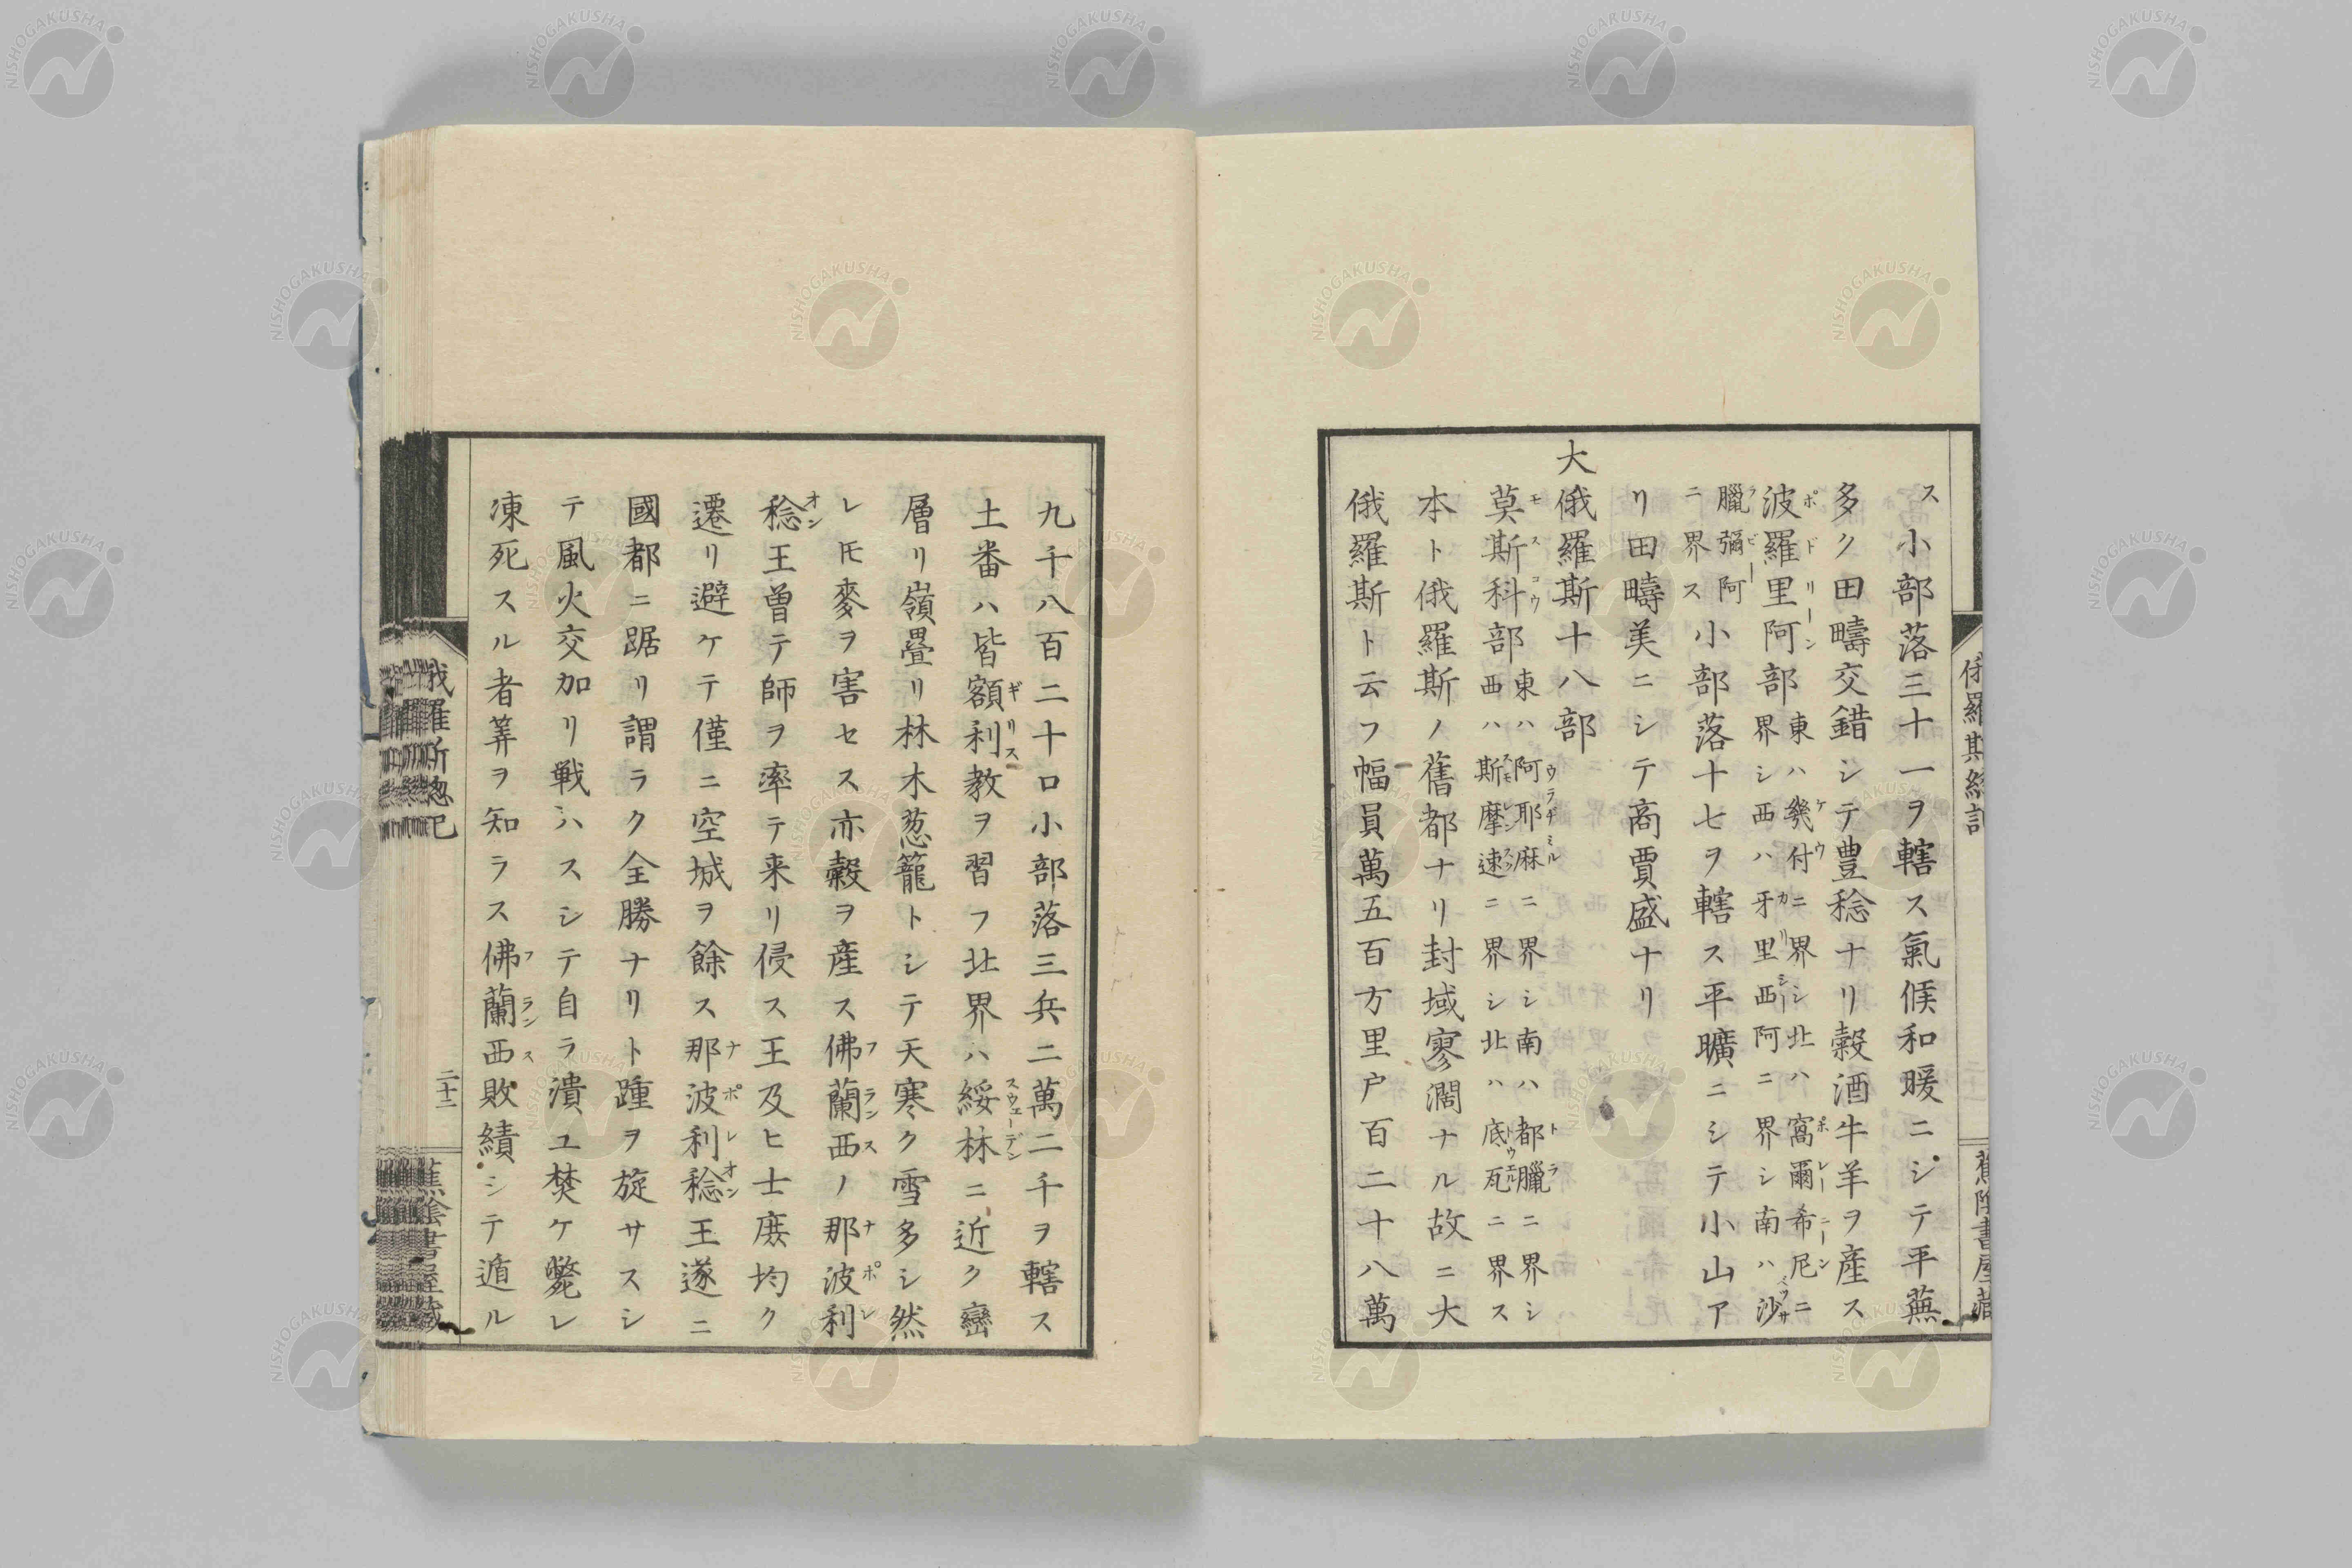 ス小部落三十一ヲ轄ス氣候和暖ニシテ平蕪
多ク田疇交錯シテ豊稔ナリ穀酒牛羊ヲ産ス
波羅里阿部東ハ幾付ニ界シ北ハ窩爾希尼ニ
界シ西ハ牙里西阿ニ界シ南ハ沙
臘彌阿
ニ界ス小部落十七ヲ轄ス平曠ニシテ小山ア
リ田疇美ニシテ商賈盛ナリ
大俄羅斯十八部
莫斯科部東ハ阿耶麻ニ界シ南ハ都臘ニ界シ
西ハ斯摩速ニ界シ北ハ底瓦ニ界ス
本ト俄羅斯ノ舊都ナリ封域寥濶ナル故ニ大
俄羅斯ト云フ幅員萬五百方里户百二十八萬
俄羅斯總記
蕉陰書屋藏
九千八百二十口小部落三兵二萬二千ヲ轄ス
土番ハ皆額利教ヲ習フ北界ハ綏林ニ近ク巒
層リ嶺疊リ林木葱籠トシテ天寒ク雪多シ然
レモ麥ヲ害セス亦穀ヲ産ス佛蘭西ノ那波利
稔王曾テ師ヲ率テ来リ侵ス王及ヒ士庶均ク
遷リ避ケテ僅ニ空城ヲ餘ス那波利稔王遂ニ
國都ニ踞リ謂ラク全勝ナリト踵ヲ旋サスシ
テ風火交加リ戦ハスシテ自ラ潰ユ焚ケ斃レ
凍死スル者筭ヲ知ラス佛蘭西敗績シテ遁ル
俄羅斯總記
二十二
蕉陰書屋藏
NISHOGAKUSHA